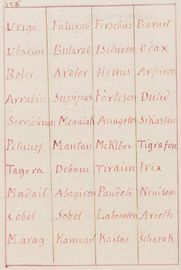 Urigo Faturab Fersebus Baruel
Ubarin Butarab Ischiron Odax
Roler Arotor Hemis Arpiron
Arrabin Supipas Forteson Dulid
Sorriolenen Megalak Anagotos Sikastin
Petunof Mantan Meklboc Tigrafon
Tagora Debam Tiraim Irix
Madail Abagiron Pandoli Nenisem
Cobel Sobel Laboneton Arioth
Marag Kamusil Kaitar Scharak